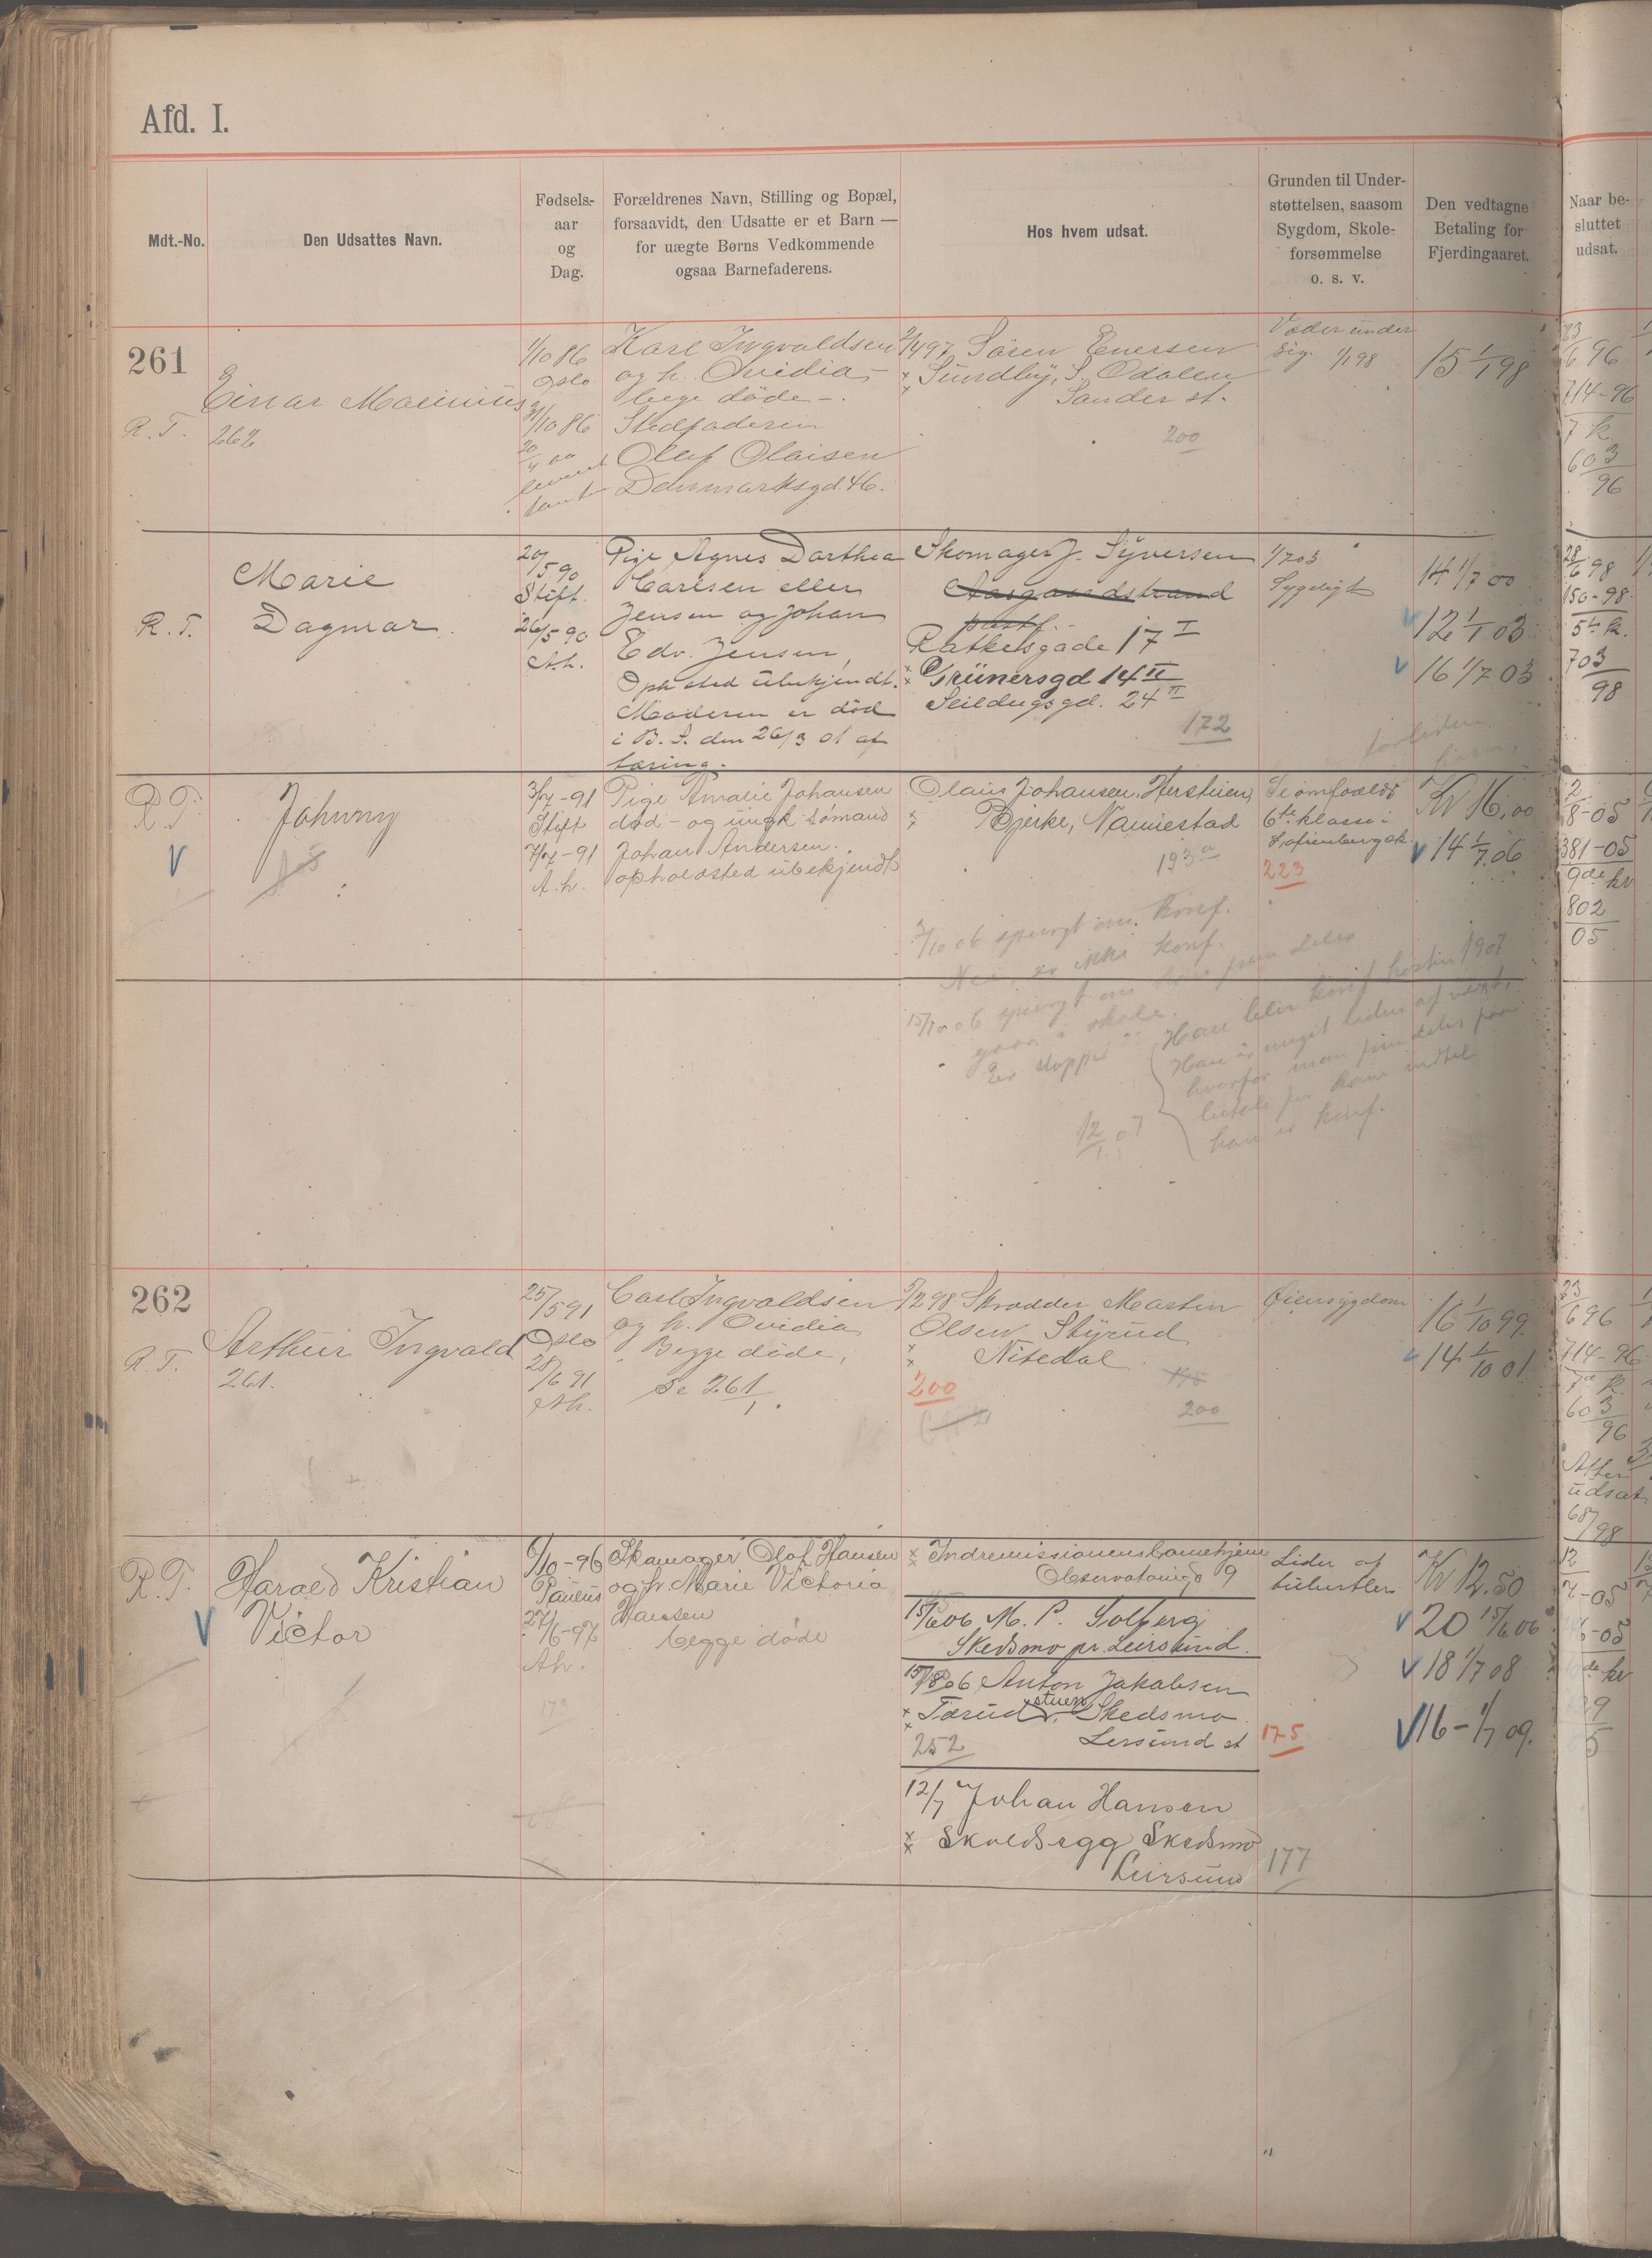 Afd. I.
Mdt.-No.
Den Udsattes Navn.
Fødsels-
aar
og
Dag.
Forældrenes Navn, Stilling og Bopæl,
forsaavidt, den Udsatte er et Barn —
for uægte Børns Vedkommende
ogsaa Barnefaderens.
Hos hvem udsat.
Grunden til Under-
støttelsen, saasom
Sygdom, Skole-
forsømmelse
o. s. v.
Den vedtagne
Betaling for
Fjerdingaaret.
Naar be-
sluttet
udsat.
261
R. T.
Einar Marinius
262
1/10 86
Oslo
31/10 86
Karl Ingvaldsen
og h. Ovidia
bege døde -.
Stedfaderen
Olaf Olaisen
Denmarksgd. 46.
Sören Enersen
Sundby, S. Odalen
Sander st.
200
Væder under
sig. 1/1 98
15 1/1 98
23/6 96
714-96
7 k
603/96
R. T.
Marie
Dagmar
20/5 90
Stift.
26/5 90
A.h.
Pige Agnes Dorthea
Carlsen eller
Jensen og Johan
Edv. Jensen,
Opholsted ubekjendt.
Moderen er død
i B. S. den 26/3 01 af
tæring.
Skomager J. Syversen
Aasgaardstrand
postf.
Ratkesgade 17 I
Grünersgd 14 II
Seildugsgd. 24 II
172
1/7 03
Sygeligt
14 1/7 00
12 1/1 03
16 1/7 03
28/6 98
150-98
5te k.
703/98
R. T.
Johnny
3/7-91
Stift
7/7-91
A. h.
Pige Amalie Johansen
død - og ungk. sømand
Johan Andersen.
opholdsted ubekjendt
Olaus Johansen, Herstuen
Bjerke, Nannestad
193a
Se omfvældt
6te klasse i
Sofienbergsk.
223
Kr 16,00
14 1/7 06
2/8-05
381-05
9de kv
802/05
7/10 06 spurgt om konf.
Nei, er ikke konf.
15/10 06 spurgt om han fremdeles
gaar i skole.
Er stoppet
12/1 07
Han blir konf høsten 1907
Han er meget liden af vext,
hvorfor man fremdeles faar
betale for ham indtil
han er konf.
262
R. T.
Arthur Ingvald
261.
25/5 91
Oslo
28/6 91
Ah.
Carl Ingvaldsen
og h. Ovidia
Begge døde,
se 261/1.
1/2 98 Skrædder Martin
Olsen Styrud
Nitedal
200
200
Øiensygdom
16 1/10 99.
14 1/10 01
23/6 96
714-96
7de k.
603/96
Atter
udsat
687/98
R. T.
Harald Kristian
Victor
6/10-96
Paulus
27/6-97
Ah.
Skomager Olaf Hansen
og h Marie Victoria
Hansen
begge døde
Indremissionens barnehjem
Observatoriegd 9
15/6 06 M. P. Solberg
Skedsmo pr. Leirsund.
15/8 06 Anton Jakobsen
Tærudstuen v. Skedsmo
Lersund st
252
175
12/7 Johan Hansen
Skoldbegg Skedsmo
Leirsund
177
Lider af
tuberkler
Kr 12.50
20 15/6 06
18 1/7 08
16 - 1/7 09.
12/7-05